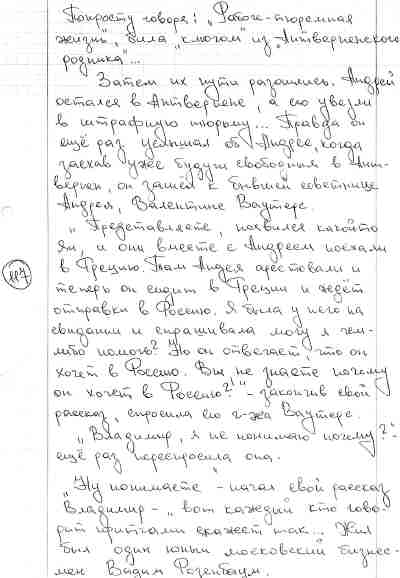 Попросту говоря: „Рабоче-тюремная
жизнь", била „ключом" из „Антверпенского
родника"...
Затем их пути разошлись. Андрей
остался в Антверпене, а его увезли
в штрафную тюрьму... Правда он
ещё раз услышал об Андрее, когда
заехав уже будучи свободным в Ант-
верпен, он зашёл к бывшей советнице
Андрея, Валентине Ваутерс.
„Представляете, появился какой-то
Ян, и они вместе с Андреем поехали
в Грецию. Там Андея арестовали и
теперь он сидит в Греции и ждёт
отправки в Россию. Я была у него на
свидании и спрашивала могу я чем-
либо помочь? Но он отвечает, что он
хочет в Россию. Вы не знаете почему
он хочет в Россию?" - закончив свой
рассказ, спросила его г-жа Ваутерс.
117
„Владимир, я не понимаю почему?" -
ещё раз переспросила она.
„Ну понимаете" - начал свой рассказ
Владимир - „вот каждый кто гово-
рит притчами скажет так... Жил
был один юный московский бизнес-
мен Вадим Розенбаум.